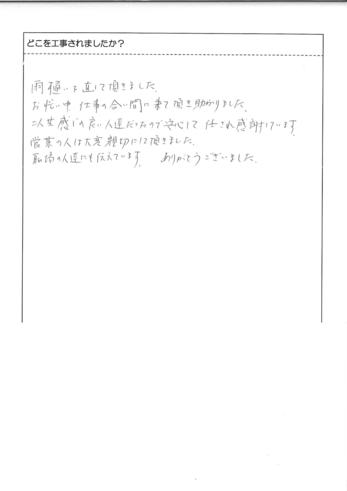 どこを工事されましたか？
雨樋いを直して頂きました。
お忙い中 仕事の合い間に来て頂き助かりました。
二人共感じの良い人達だったので安心して 任され感謝しています。
営業の人は大変親切にして頂きました。
職場の人達にも伝えています。 ありがとうございました。